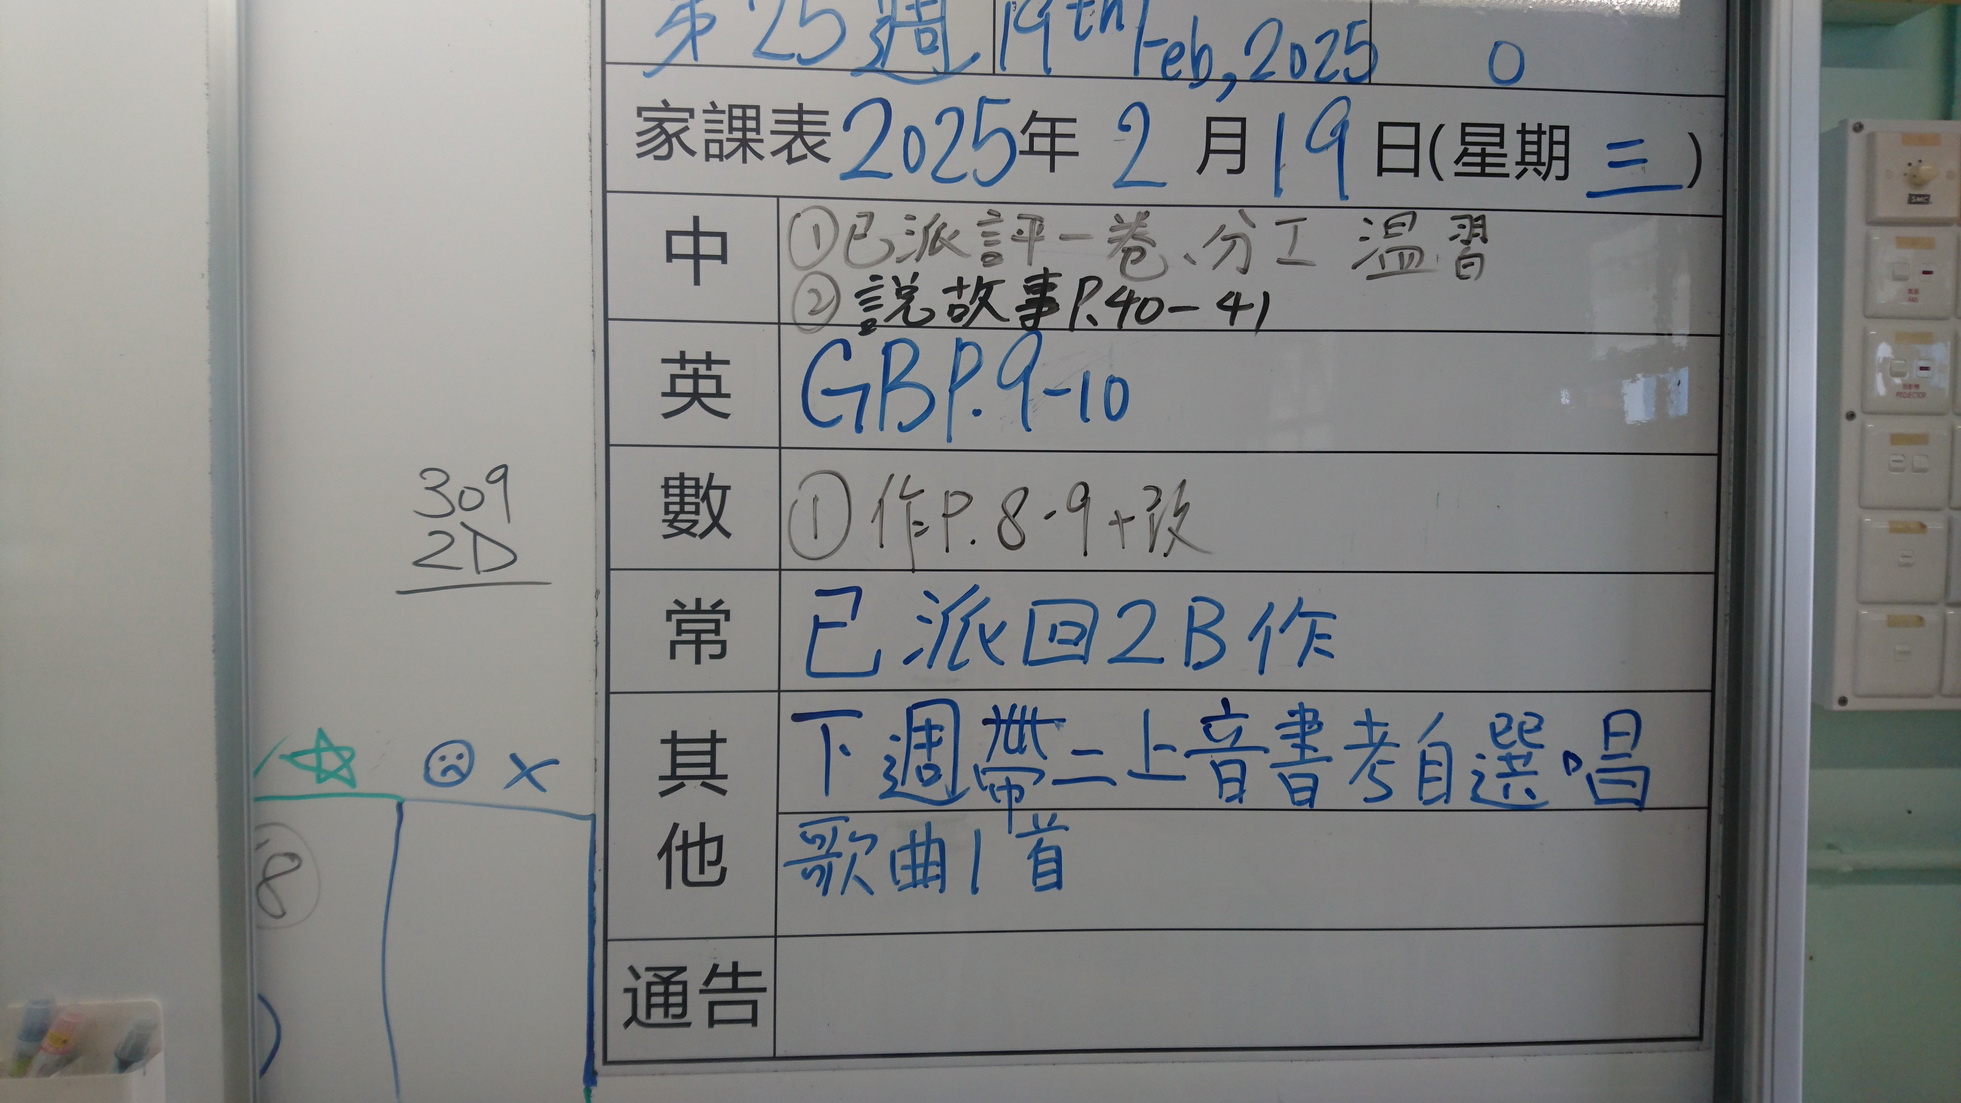 第25週 19th Feb, 2025 0
家課表2025年2月19日(星期三)
中 ①已派評一卷、分工溫習
②說故事P.40-41
英 GBP.9-10
數 ①作P.8-9+改
常 已派回2B作
其他 下週帶二上音書考自選唱
歌曲1首
通告
309
2D
8